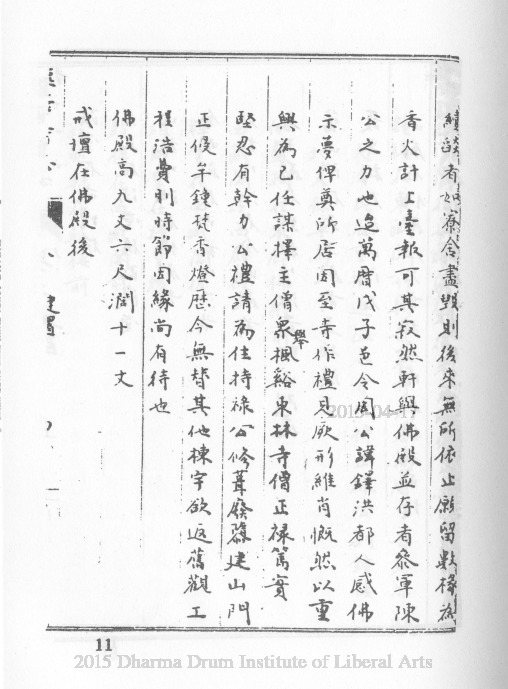 續談者如寮舍盡毀則後來無所依止願留數椽為
香火計上臺報可其寂然軒與佛殿並存者參軍陳
公之力也迨萬曆戊子邑令周公諱鐸洪都人感佛
示夢俾奠所居因至寺作禮見厥形維肖慨然以重
興為己任謀擇主僧眾舉楓谿東林寺僧正祿篤實
堅忍有幹力公禮請為住持祿公修葺廢墜建山門
正侵牟鐘梵香燈歷今無替其他棟宇欲返舊觀工
程浩費則時節因緣尚有待也
佛殿高九丈六尺濶十一丈
戒壇在佛殿後
2015-04-17
11
2015 Dharma Drum Institute of Liberal Arts